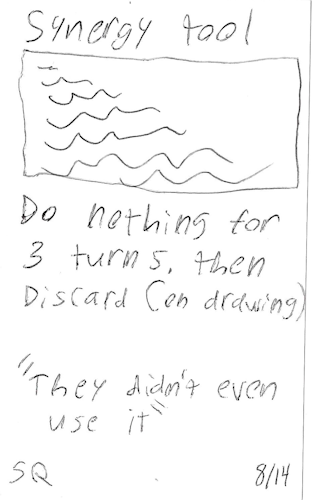 Synergy tool
Do nothing for
3 turns, then
Discard (on drawing)
"They didn't even
use it"
SQ
8/14